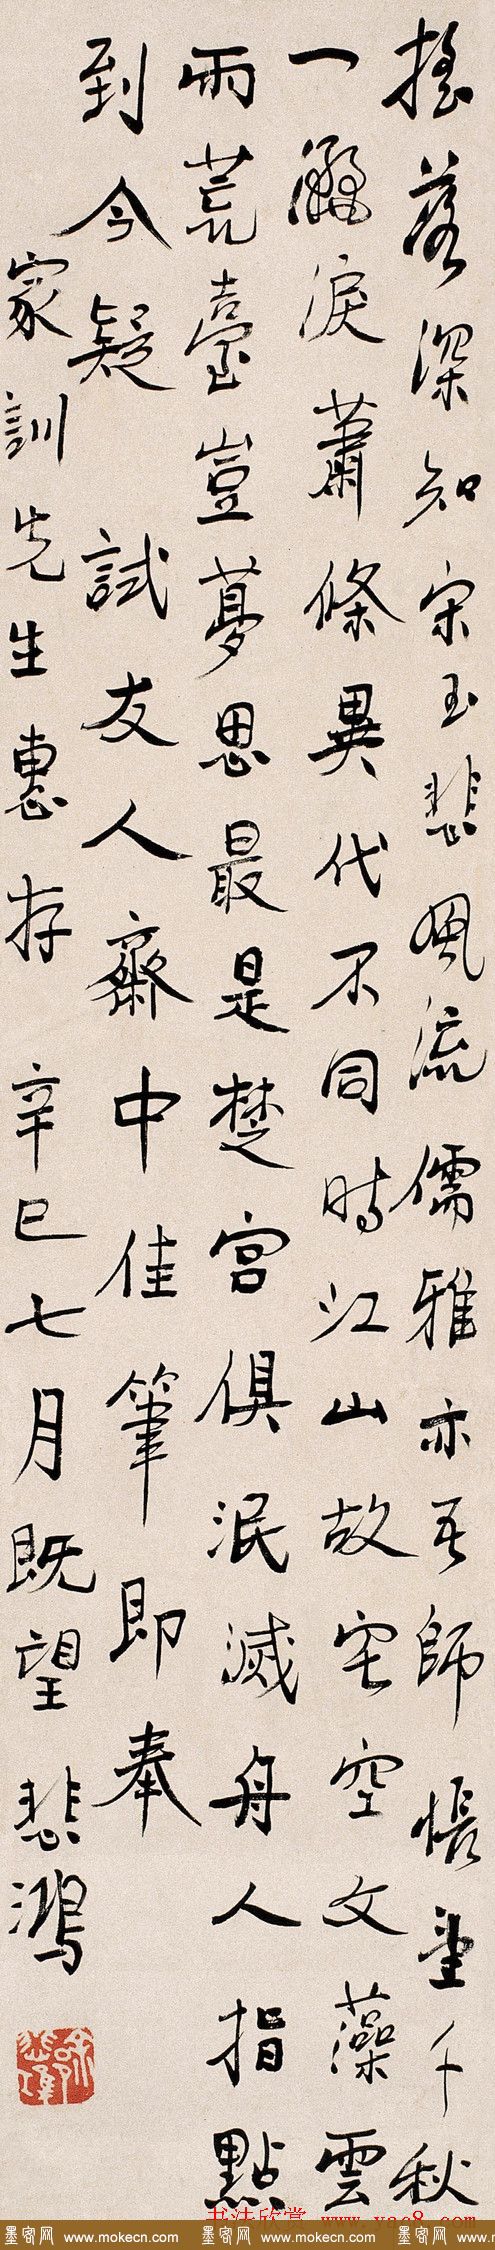 搖落深知宋玉悲風流儒雅亦吾師悵望千秋
一灑淚蕭條異代不同時江山故宅空文藻雲
雨荒臺豈夢思最是楚宮俱泯滅舟人指點
到今疑 試友人齋中佳筆即奉
家訓先生惠存 辛巳七月既望 悲鴻
书法欣赏 www.yac8.com
墨客网 www.mokecn.com 墨客网 www.mokecn.com 墨客网